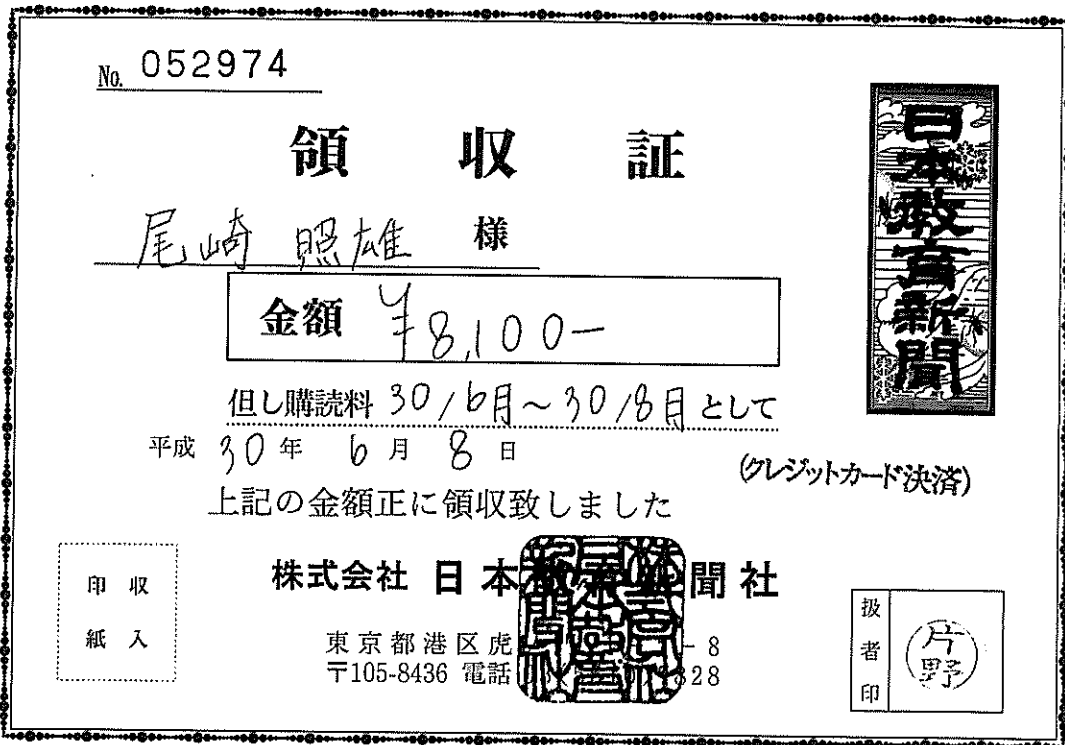 No. 052974
日本教育新聞
領収証
尾崎 照雄 様
金額 ¥8,100-
但し購読料 30/6月~30/8月として
平成 30年 6月 8日
(クレジットカード決済)
上記の金額正に領収致しました
株式会社 日本教育新聞社
東京都港区虎 - 8
〒105-8436 電話 828
収入印紙
扱者印
片野